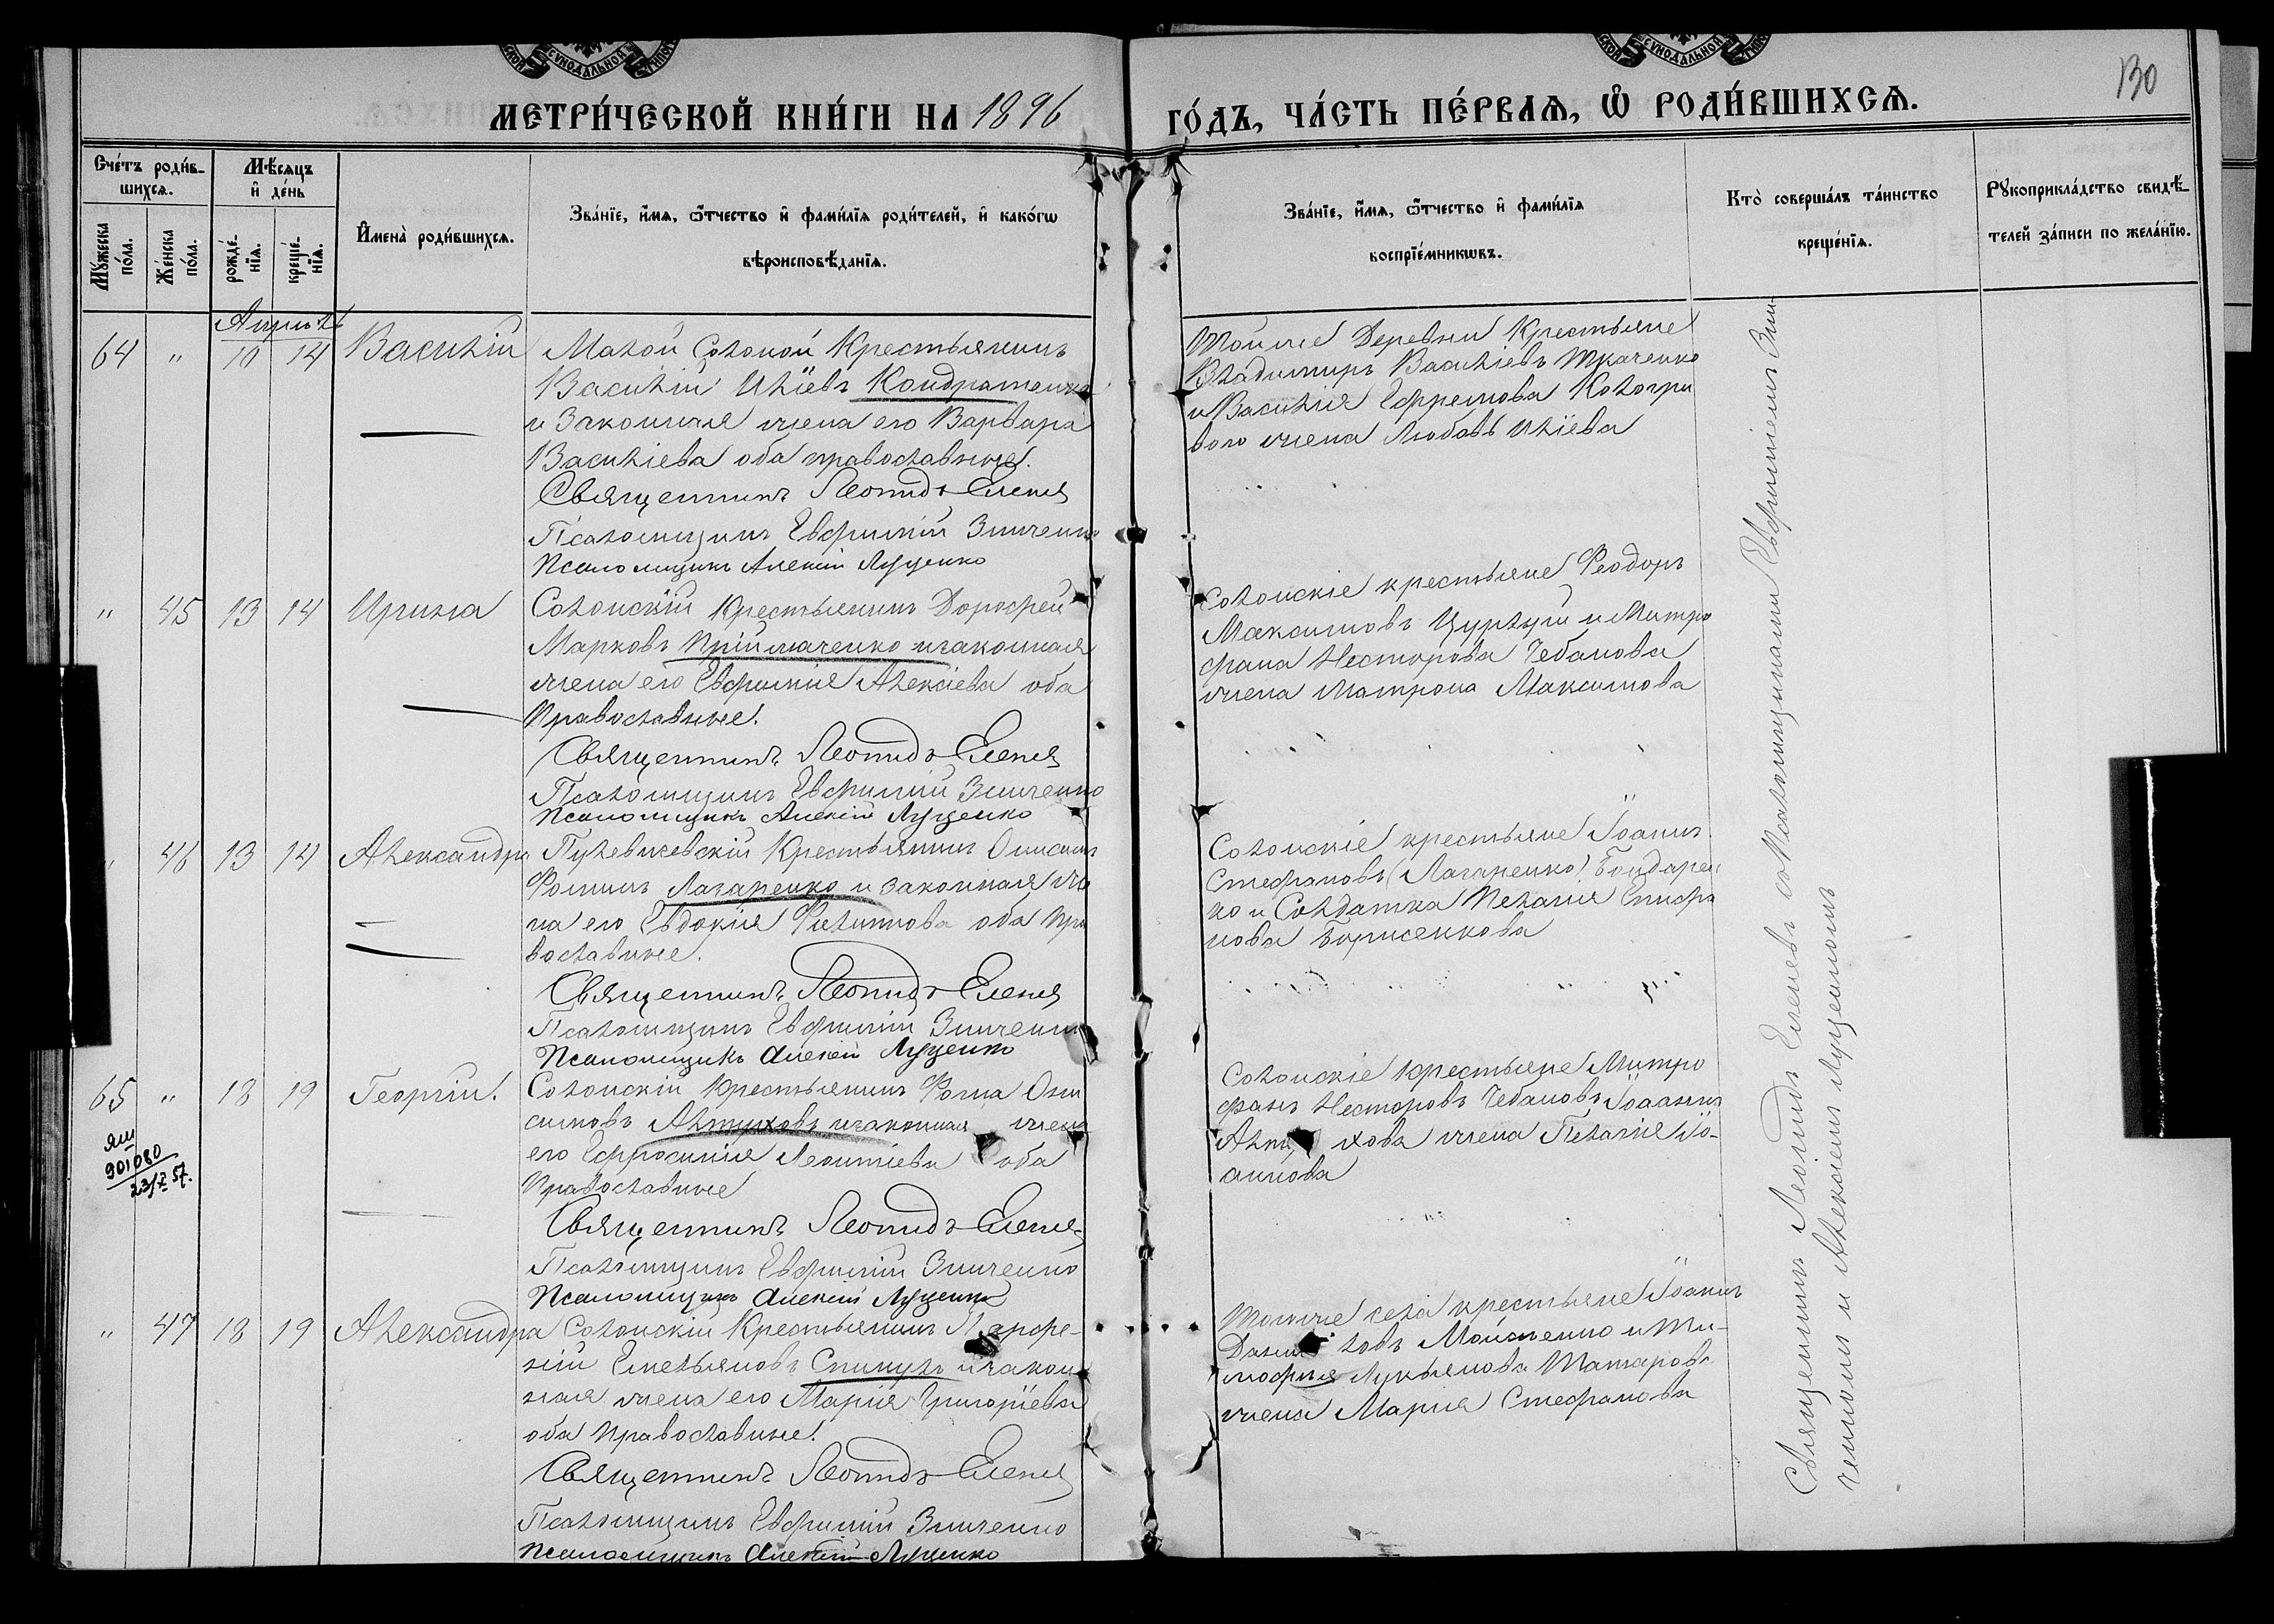 СУНОДАЛЬНОЙ
СУНОДАЛЬНОЙ
130
МЕТРИ́ЧЕСКОЙ КНИ́ГИ НА 1896 ГО́ДЪ, ЧА́СТЬ ПЕ́РВАѦ, Ѡ҆ РОДИ́ВШИХСѦ.
Сче́тъ роди́в-
шихсѧ.
Мꙋ́жеска по́ла.
Же́нска по́ла.
Мѣ́сѧцъ
и҆ де́нь
рожде́-
нїѧ.
креще́-
нїѧ.
И҆мена̀ роди́вшихсѧ.
Зва́нїе, и҆́мѧ, ѻ҆́тчество и҆ фами́лїѧ роди́телей, и҆ како́гѡ
вѣроисповѣ́данїѧ.
Зва́нїе, и҆́мѧ, ѻ҆́тчество и҆ фами́лїѧ
воспрїе́мникѡвъ.
Кто̀ соверша́лъ та́инство
креще́нїѧ.
Рꙋкоприкла́дство свидѣ́-
телей за́писи по жела́нїю.
Апрель
64 " 10 14 Василій Малой Солоной Крестьянинъ
Василій Иліевъ Кондратенко
и Законная жена его Варвара
Василіева оба православные.
Священникъ Леонидъ Еленев
Псаломщикъ Евфимій Зинченко
Псаломщикъ Алексій Луценко
Тойже Деревни Крестьяне
Владимиръ Василіевъ Ткаченко
и Василія Ефремова Кологри
вого жена Любовь Иліева
" 45 13 14 Ирина Солонскій Крестьянинъ Дорофей
Марковъ Прiймаченко и законная
жена его Евфимія Алексіева оба
Православные.
Священникъ Леонидъ Еленев
Псаломщикъ Евфимій Зинченко
Псаломщикъ Алексій Луценко
Солонскіе крестьяне Феодоръ
Максимовъ Цуркуш и Митро
фана Несторова Чебанова
жена Матрона Максимова
" 46 13 14 Александра Гулевичевскій Крестьянинъ Онисимъ
Фоминъ Лазаренко и законная же
на его Евдокія Филиппова оба пра
вославные.
Священникъ Леонидъ Еленев
Псаломщикъ Евфимій Зинченко
Псаломщикъ Алексій Луценко
Солонскіе крестьяне Іоаннъ
Стефановъ (Лазаренко) Бондарен
ко и Солдатка Пелагія Епифа
нова Борисенкова
65 " 18 19 Георгій. Солонскій Крестьянинъ Фома Они
симовъ Алтуховъ и законная жена
его Ефросинія Леонтіева оба
Православные
Священникъ Леонидъ Еленев
Псаломщикъ Евфимій Зинченко
Псаломщикъ Алексій Луценко
Солонскіе крестьяне Митро
фанъ Несторовъ Чебановъ Іоанна
Алтухова жена Пелагія Іо-
аннова
901080
23/X 57.
" 47 18 19 Александра Солонскій Крестьянинъ Парфе-
ній Емельяновъ Спинулъ и закон
ная жена его Марія Григоріева
оба Православные.
Священникъ Леонидъ Еленев
Псаломщикъ Евфимій Зинченко
Псаломщикъ Алексій Луценко
Тогоже села крестьяне Іоаннъ
Даниловъ Мойсеенко и Ти-
мофея Лукьянова Татарова
жена Марія Стефанова
Священникъ Леонидъ Еленевъ съ Псаломщиками Евфиміемъ Зин
ченкомъ и Алексіемъ Луценкомъ